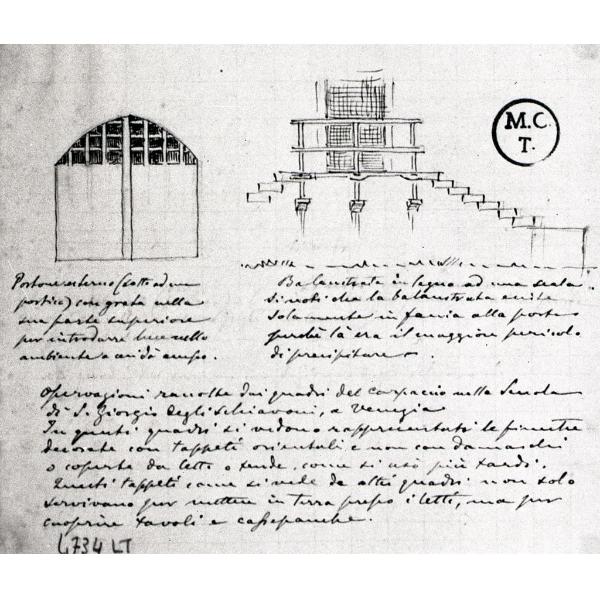 M.C.
T.
Portone esterno (sotto ad un
portico) con grata nella
sua parte superiore
per introdurre luce nello
ambiente a cui dà ampo.
Balaustrata in legno ad una scala
si noti che la balaustrata esiste
solamente in faccia alla porta
perchè là era il maggiore pericolo
di precipitare
Osservazioni raccolte dai quadri del Carpaccio nella Scuola
di S. Giorgio degli Schiavoni, a Venezia
In questi quadri si vedono rappresentate le finestre
decorate con tappeti orientali e non con damaschi
o coperte da letto o tende, come si usò più tardi.
Questi tappeti come si vede da altri quadri non solo
servivano per mettere in terra presso i letti, ma per
cuoprire tavoli e cassepanche.
4734 LT